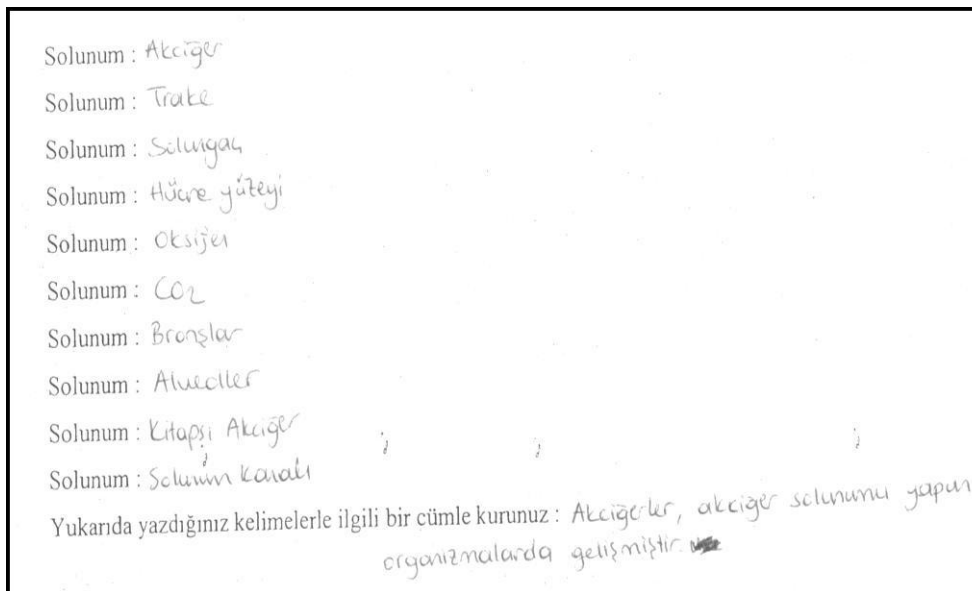 Solunum : Akciğer
Solunum : Trake
Solunum : Solungaç
Solunum : Hücre yüzeyi
Solunum : Oksijen
Solunum : CO2
Solunum : Bronşlar
Solunum : Alveoller
Solunum : Kitapsı Akciğer
Solunum : Solunum kanalı
Yukarıda yazdığınız kelimelerle ilgili bir cümle kurunuz : Akciğerler, akciğer solunumu yapan
organizmalarda gelişmiştir.